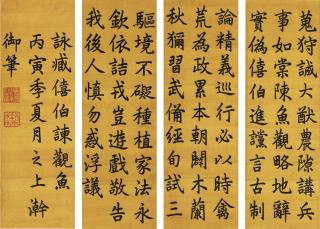 蒐狩誠大猷農隙講兵
事如棠陳魚觀略地辭
實偽僖伯進讜言古制
論精義巡行必以時禽
荒為政累本朝闢木蘭
秋獮習武備經旬試三
驅境不礙種植家法永
欽依詰戎豈遊戲敬告
我後人慎勿惑浮議
詠臧僖伯諫觀魚
丙寅季夏月之上澣
御筆